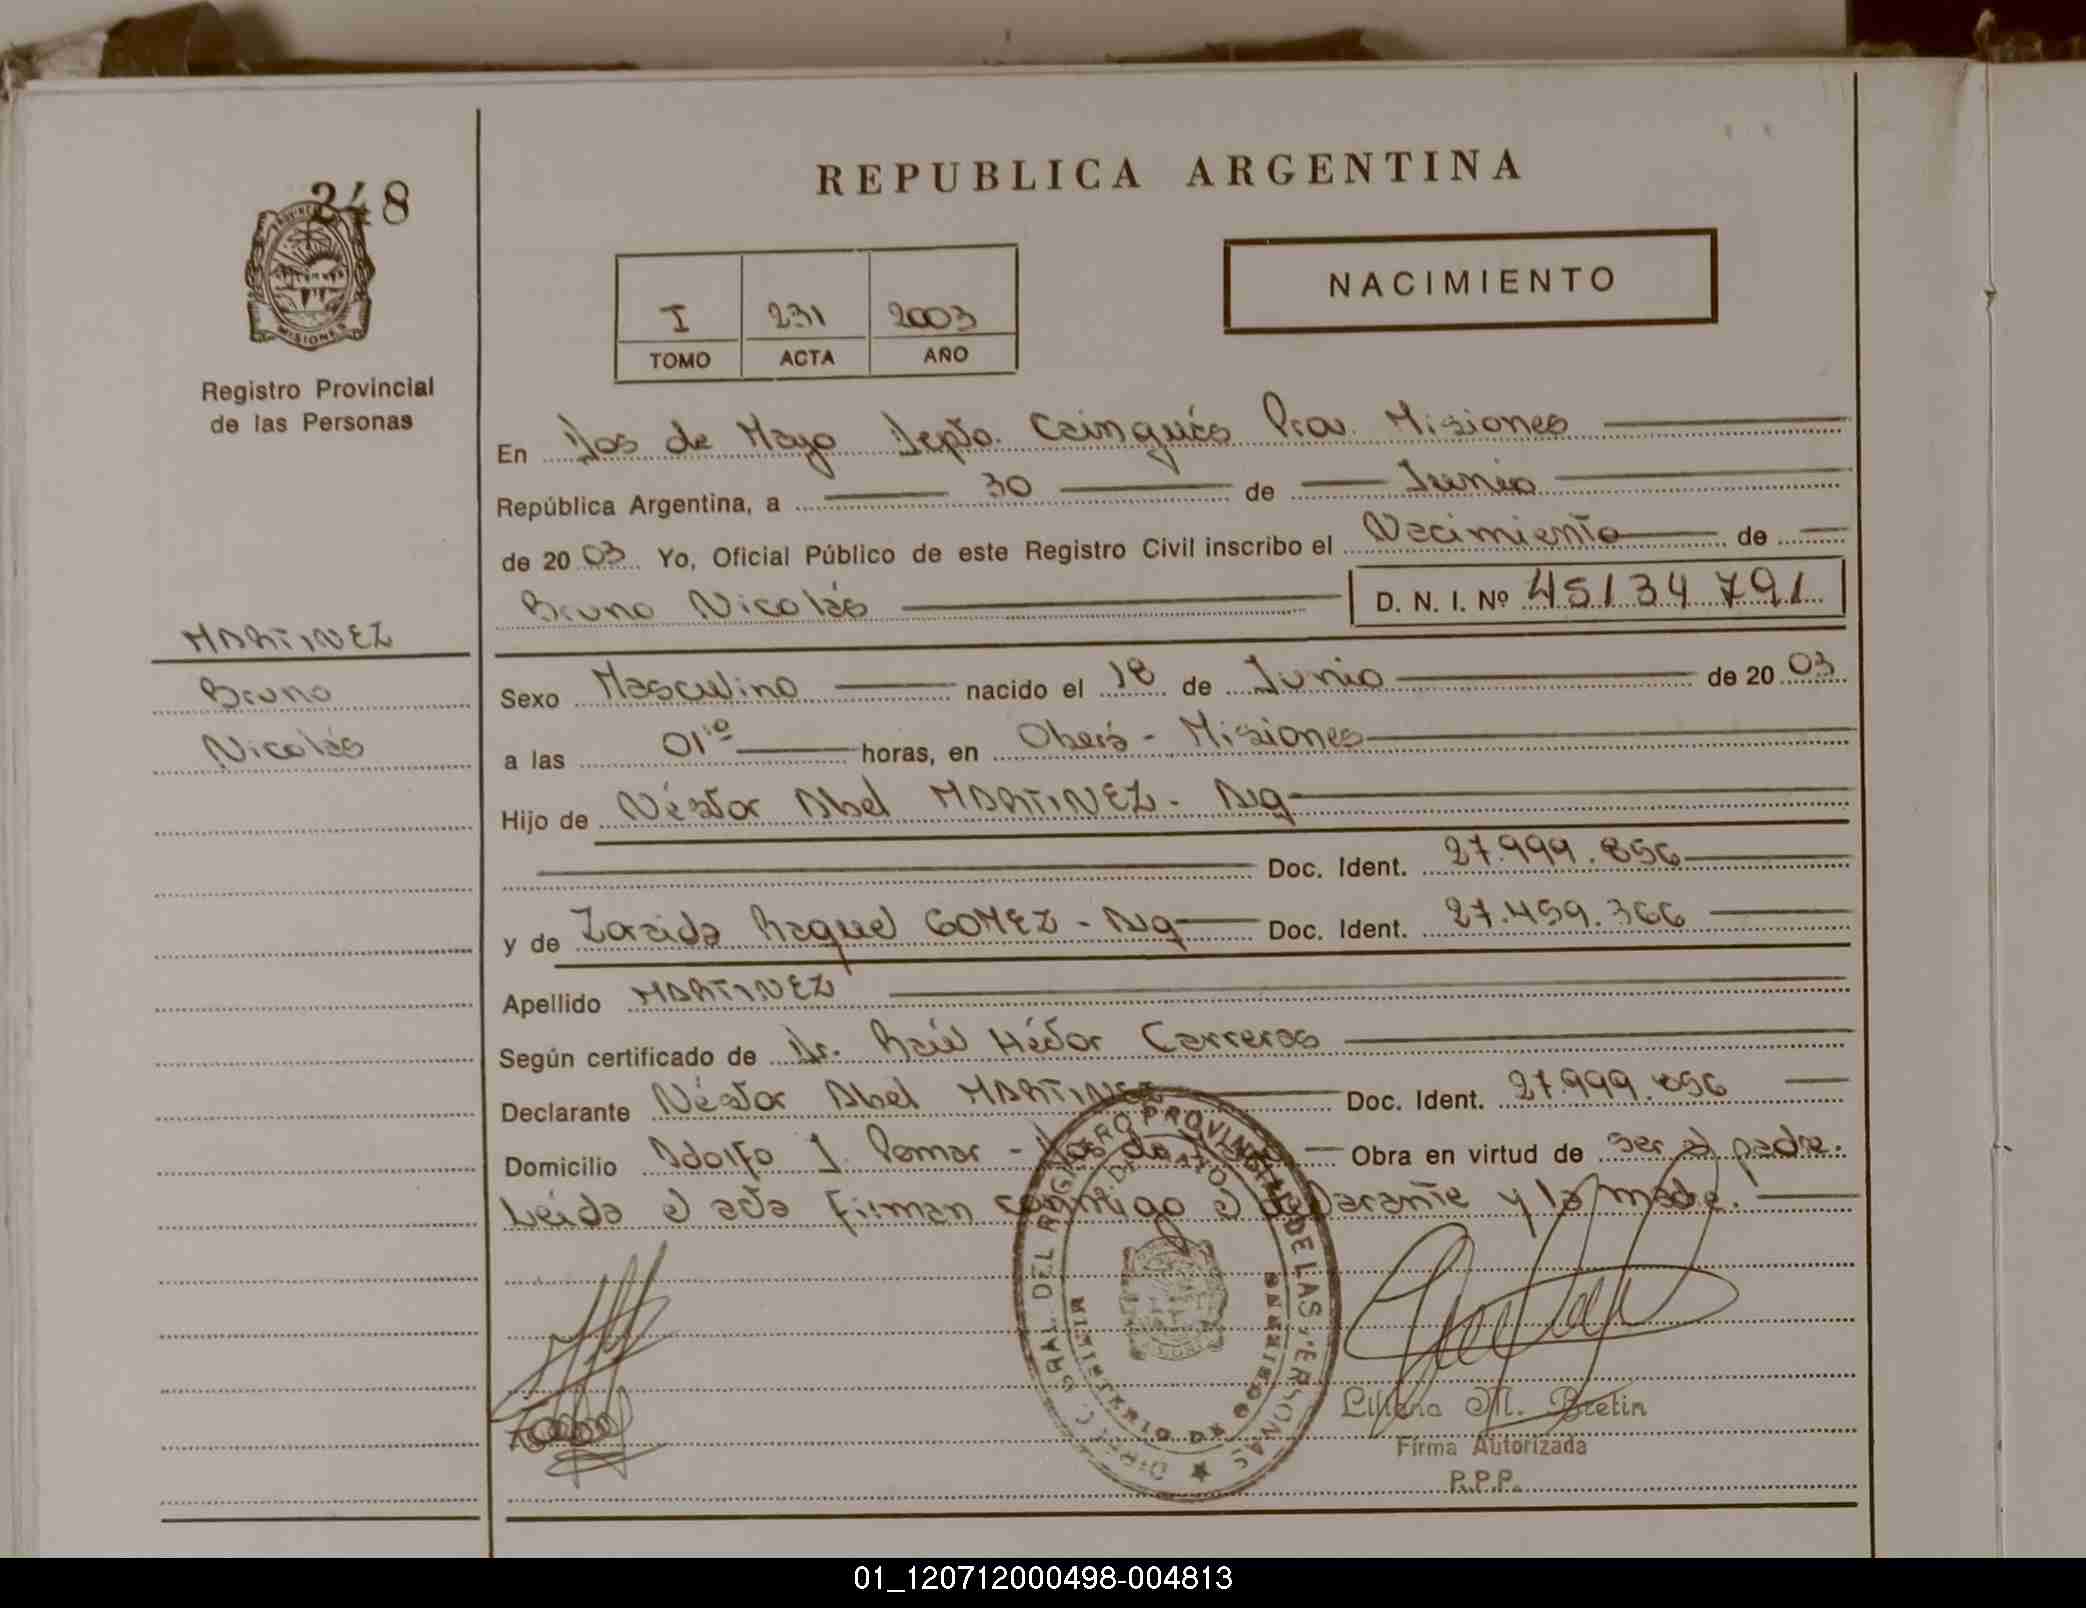 248
MISIONES
Registro Provincial
de las Personas
MARTINEZ
Bruno
Nicolás
REPUBLICA ARGENTINA
NACIMIENTO
I 231 2003
TOMO ACTA AÑO
En Dos de Mayo Depto. Cainguás Prov. Misiones
República Argentina, a 30 de Junio
de 20 03 Yo, Oficial Público de este Registro Civil inscribo el Nacimiento de
Bruno Nicolás D. N. I. Nº 45134791
Sexo Masculino nacido el 18 de Junio de 20 03
a las 01:10 horas, en Oberá - Misiones
Hijo de Néstor Abel MARTINEZ - Arg
Doc. Ident. 27.999.856
y de Zoraida Raquel GOMEZ - Arg Doc. Ident. 27.459.366
Apellido MARTINEZ
Según certificado de Dr. Raúl Héctor Carreras
Declarante Néstor Abel MARTINEZ Doc. Ident. 27.999.856
Domicilio Adolfo J. Pomar - Dos de Mayo Obra en virtud de ser el padre.
Leída el acta firman conmigo el declarante y la madre.
DIREC. GRAL. DEL REGISTRO PROVINCIAL DE LAS PERSONAS
MINISTERIO DE GOBIERNO
Liliana M. Bretin
Firma Autorizada
R.P.P.
01_120712000498-004813